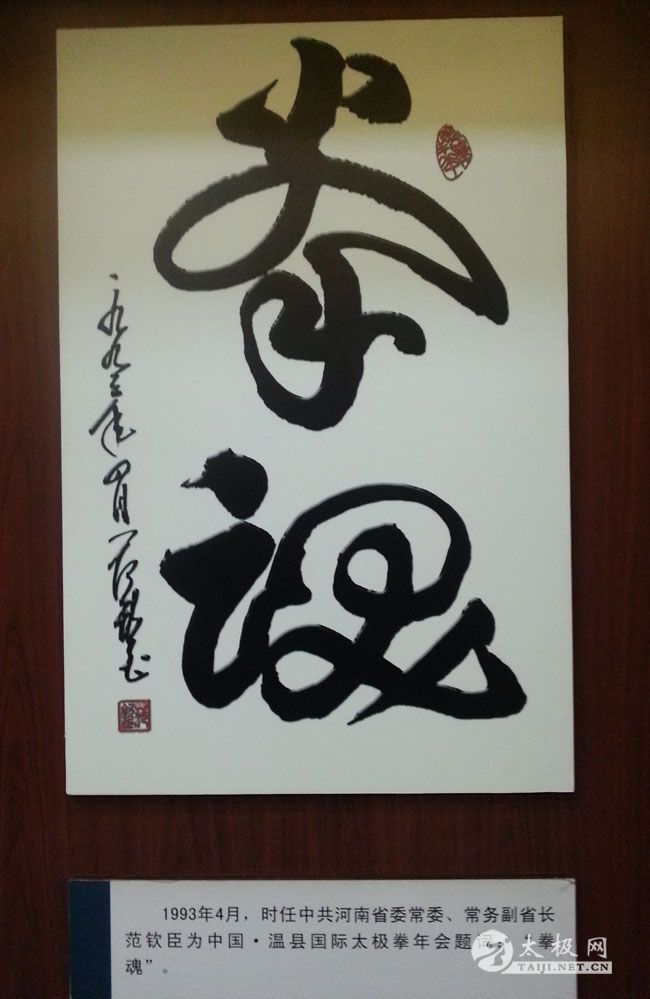 拳
魂
一九九三年四月 范钦臣
1993年4月，时任中共河南省委常委、常务副省长
范钦臣为中国·温县国际太极拳年会题词：“拳
魂”。
太极网
TAIJI.NET.CN